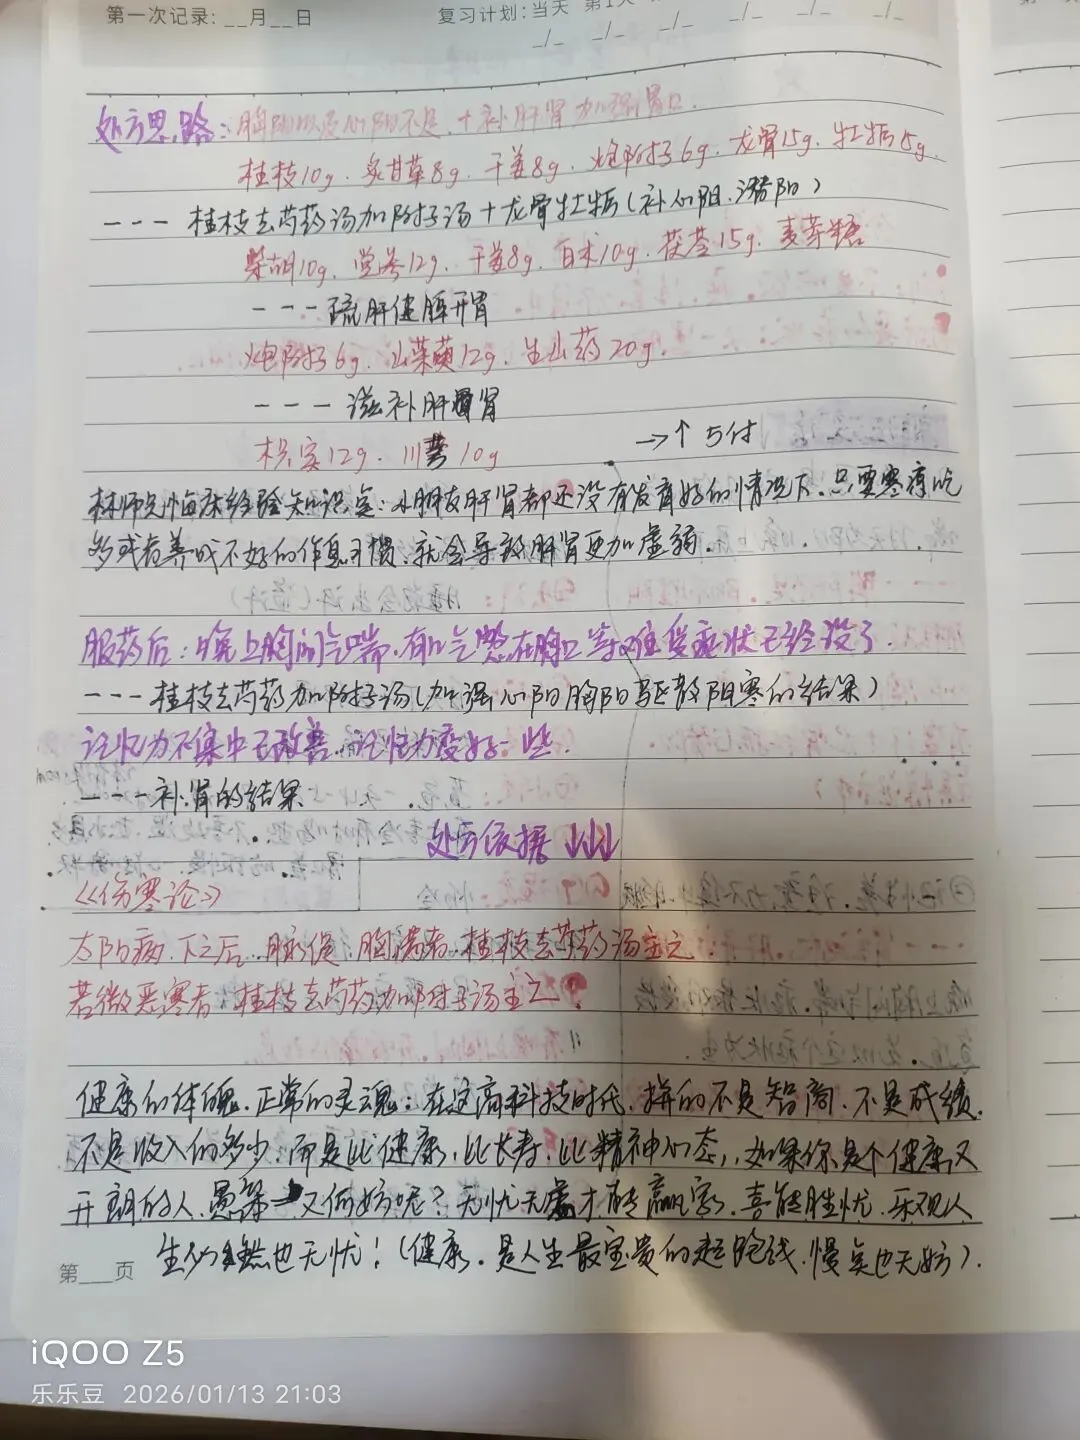 第一次记录：__月__日
复习计划：当天 第1天
处方思路：胸阳以及心阳不足，+补肝肾加强胃口。
桂枝10g、炙甘草8g、干姜8g、炮附子6g、龙骨15g、牡蛎15g、
---桂枝去芍药汤加附子汤+龙骨牡蛎（补心阳、潜阳）
柴胡10g、党参12g、干姜8g、白术10g、茯苓15g、麦芽糖
---疏肝健脾开胃
炮附子6g、山茱萸12g、生山药20g。
---滋补肝肾
枳实12g、川芎10g
→↑5付
林师兄临床经验知识点：小朋友肝肾都还没有发育好的情况下，只要寒凉吃
多或者养成不好的作息习惯，就会导致肝肾更加虚弱。
服药后：晚上胸闷气喘，有口气憋在胸口等难受症状已经没了。
---桂枝去芍药加附子汤（加强心阳胸阳驱散阴寒的结果）
记忆力不集中已改善，记忆力变好一些。
---补肾的结果
处方依据↓↓↓
《伤寒论》
太阳病，下之后，脉促，胸满者，桂枝去芍药汤主之。
若微恶寒者，桂枝去芍药加附子汤主之。
健康的体魄，正常的灵魂；在这高科技时代，拼的不是智商，不是成绩，
不是收入的多少，而是比健康，比长寿，比精神心态，，如果你是个健康又
开朗的人，愚笨又何妨呢？无忧无虑才能赢家，喜能胜忧，乐观人
生仍然也无忧！（健康，是人生最宝贵的起跑线，慢点也无妨）。
第___页
iQOO Z5
乐乐豆 2026/01/13 21:03